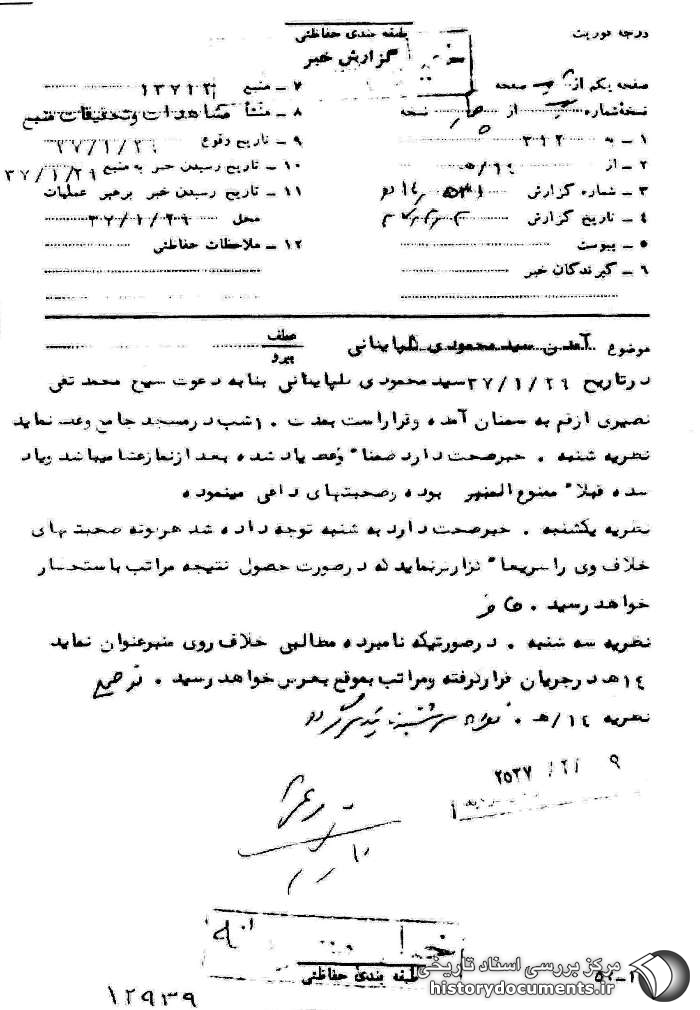 درجه فوریت
طبقه بندی حفاظتی
گزارش خبر
صفحه یکم از صفحه
نسخه شماره از نسخه
۱ – به ۳۱۲
۲ – از ۱۴/ه
۳ – شماره گزارش
۴ – تاریخ گزارش
۵ – پیوست
۶ – گیرندگان خبر
۷ – منبع ۱۳۷۱۲
۸ – منشأ مشاهدات و تحقیقات منبع
۹ – تاریخ وقوع ۳۷/۱/۲۶
۱۰ – تاریخ رسیدن خبر به منبع ۳۷/۱/۲۶
۱۱ – تاریخ رسیدن خبر برهبر عملیات
محل ۳۷/۱/۲۹
۱۲ – ملاحظات حفاظتی
موضوع آمدن سید محمودی گلپایگانی
عطف
پیرو
در تاریخ ۳۷/۱/۲۶ سید محمودی گلپایگانی بنا به دعوت شیخ محمد تقی
نصیری از قم به سمنان آمده و قرار است بمدت ۱۰ شب در مسجد جامع وعظ نماید
نظریه شنبه . خبر صحت دارد ضمنا" وعظ یاد شده بعد از نماز عشا میباشد و یاد
شده قبلا" ممنوع المنبر بوده و صحبتهای داغی مینموده
نظریه یکشنبه . خبر صحت دارد به شنبه توجه داده شد هر گونه صحبتهای
خلاف وی را سریعا" گزارش نماید که در صورت حصول نتیجه مراتب باستحضار
خواهد رسید .
نظریه سه شنبه . در صورتیکه نامبرده مطالبی خلاف روی منبر عنوان نماید
۱۴ ه در جریان قرار گرفته و مراتب بموقع بعرض خواهد رسید .
نظریه ۱۴/ه .
۹ /۲/ ۲۵۳۷
طبقه بندی حفاظتی
۱۲۹۳۹
مرکز بررسی اسناد تاریخی
historydocuments.ir